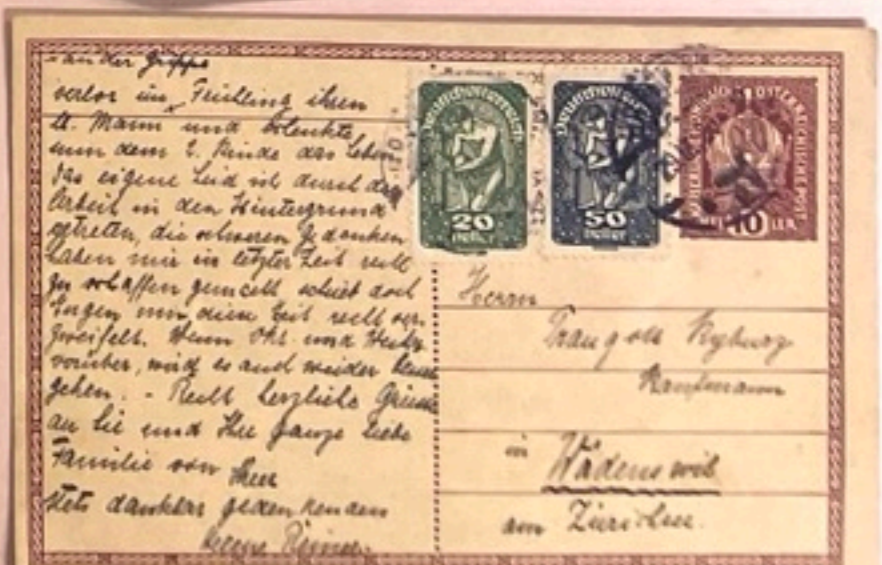 an der Grippe
verlor im Frühling ihren
lb. Mann und schenkte
nun dem 2. Kinde das Leben
das eigene Leid ist durch die
Arbeit in den Hintergrund
getreten, die schweren Gedanken
haben mir in letzter Zeit recht
zu schaffen gemacht schrieb doch
Eugen um diese Zeit recht ver-
zweifelt. Wenn Okt. und
vorüber, wird es auch wieder besser
gehen. - Recht herzliche Grüsse
an Sie und Ihre ganze liebe
Familie von Ihrer
stets dankbar gedenkenden
Deutschösterreich
20
Heller
Deutschösterreich
50
Heller
ÖSTERREICHISCHE POST
10
Herrn
Traugott Kyburz
Kaufmann
in Wädenswil
am Zürichsee.